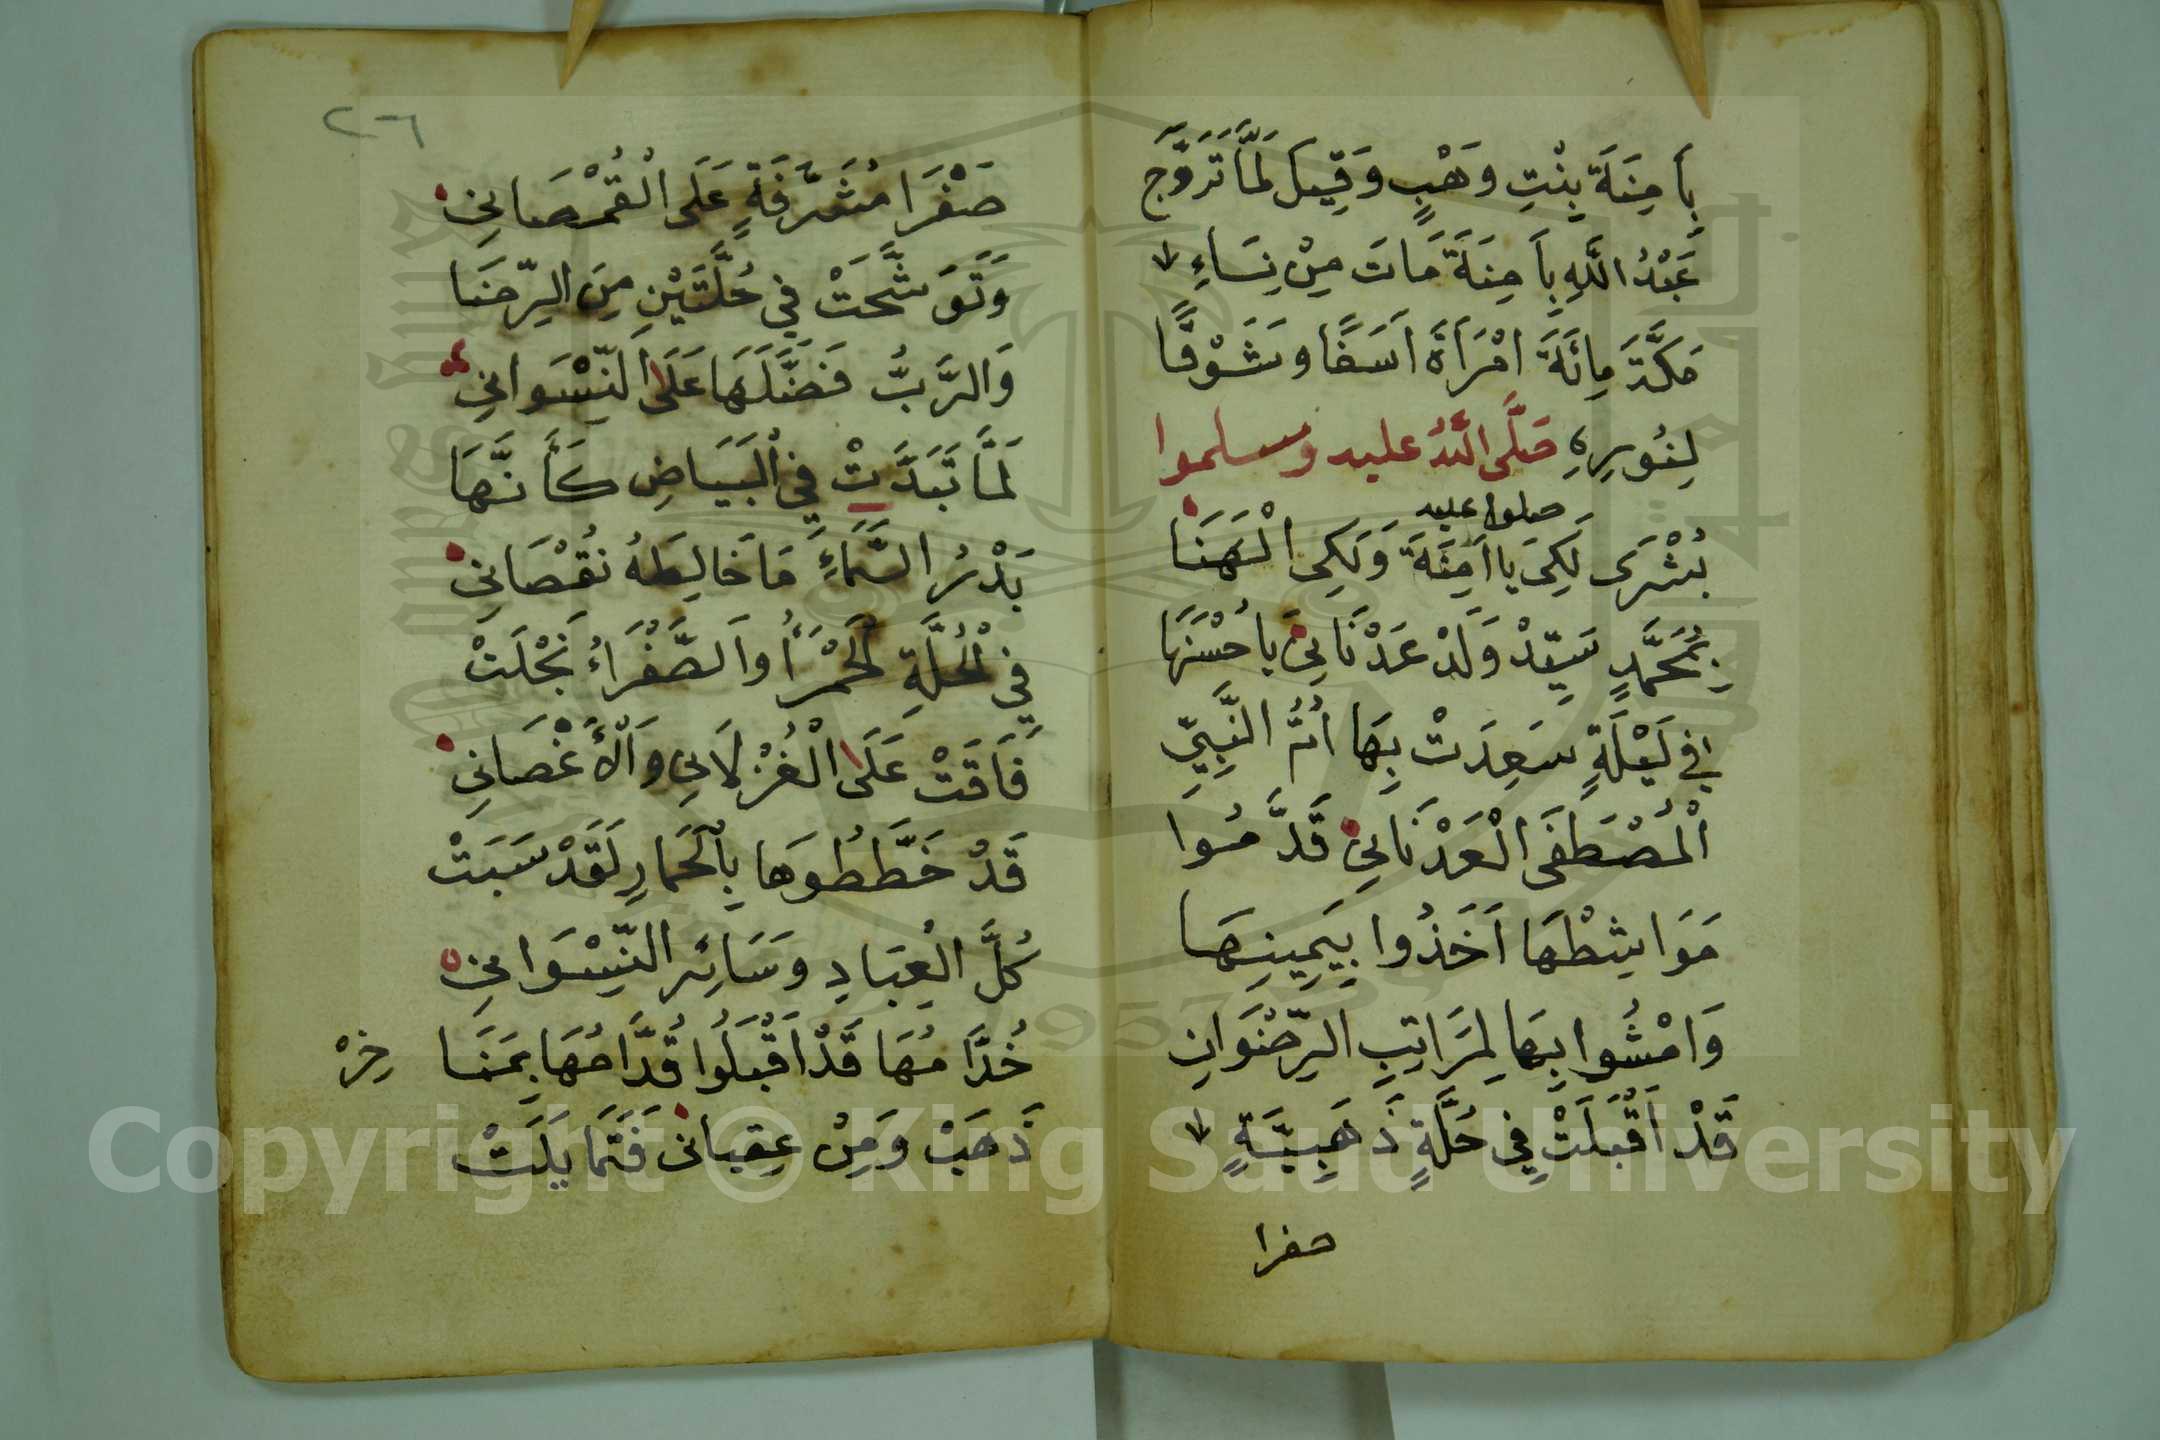 بِأَمِنَةَ بِنْتِ وَهْبٍ وَقِيلَ لَمَّا تَزَوَّجَ
عَبْدُ اللَّهِ بِأَمِنَةَ مَاتَ مِنْ نِسَاءِ
مَكَّةَ مِائَةَ امْرَأَةَ اَسَفًا وشَوْقًا
لِنُورِهِ صَلَّى اللَّهُ عليه وسلموا
صلوا عليه
بُشْرَى لَكِى يَا اَمِنَةَ وَلَكِى الْهَنَا
بِمُحَمَّدٍ سَيِّدْ وَلَدْ عَدْنَانِى يا حُسْنَهَا
فِي لَيْلَةٍ سَعِدَتْ بِهَا اُمُّ النَّبِيِّ
اْلمُصْطَفَى الْعَدْنَانِى قَدَّمُوا
مَوَاشِطْهَا اَخَذُوا بِيَمِينِهَا
وَامْشُوا بِهَا لِمَرَاتِبِ الرِّضْوَانِ
قَدْ اَقْبَلَتْ فِي حُلَّةٍ ذَهَبِيَّةٍ
صفرا
٢٠٦
صَفْرَا مُشَرَّفَةٍ عَلَى الْقُمْصَانِى
وَتَوَشَّحَتْ فِي حُلَّتَيْنِ مِنَ الرِّضَا
وَالرَّبُّ فَضَّلَهَا عَلَى النِّسْوَانِى
لَمَّا تَبَدَّتْ فِي الْبَيَاضِ كَأَنَّهَا
بَدْرُ السَّمَاءِ مَا خَالِطَهُ نُقْصَانِى
فِي الْحُلَّةِ الْحَمْرَا وَالصَّفْرَاءُ نَجْلَتْ
فَاقَتْ عَلَى الْغُزْلَانِى وَالْأَغْصَانِى
قَدْ خَطَّطُوهَا بِالْخَمَارِ لَقَدْ سَبَتْ
كُلَّ الْعِبَادِ وَسَائِر النِّسْوَانِى
خُدَّامُهَا قَدْ اَقْبَلُوا قُدَّامُهَا بِمَنَا خِرْ
ذَهَبْ وَمِنْ عِقيانى فَتَمَايَلَتْ
Copyright © King Saud University
1957